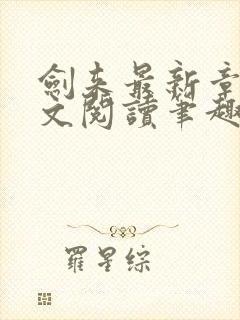 劍来最新章
文閱讀筆趣
羅星綜